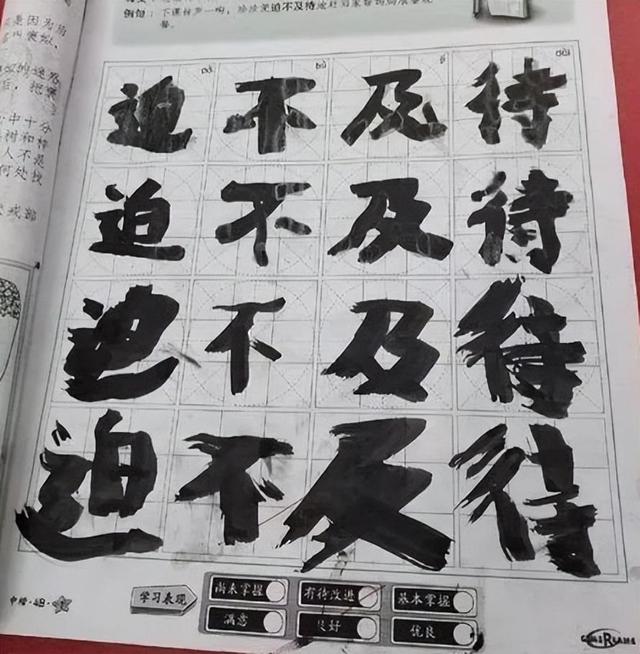 例句：下课铃声一响，迫不及待地
是因为
中十分
树和种
人不是
何处找
戎部
pò bù jí dài
迫不及待
迫不及待
迫不及待
迫不及待
学习表现
尚未掌握 有待改进 基本掌握
满意 良好 优良
中楷·4B